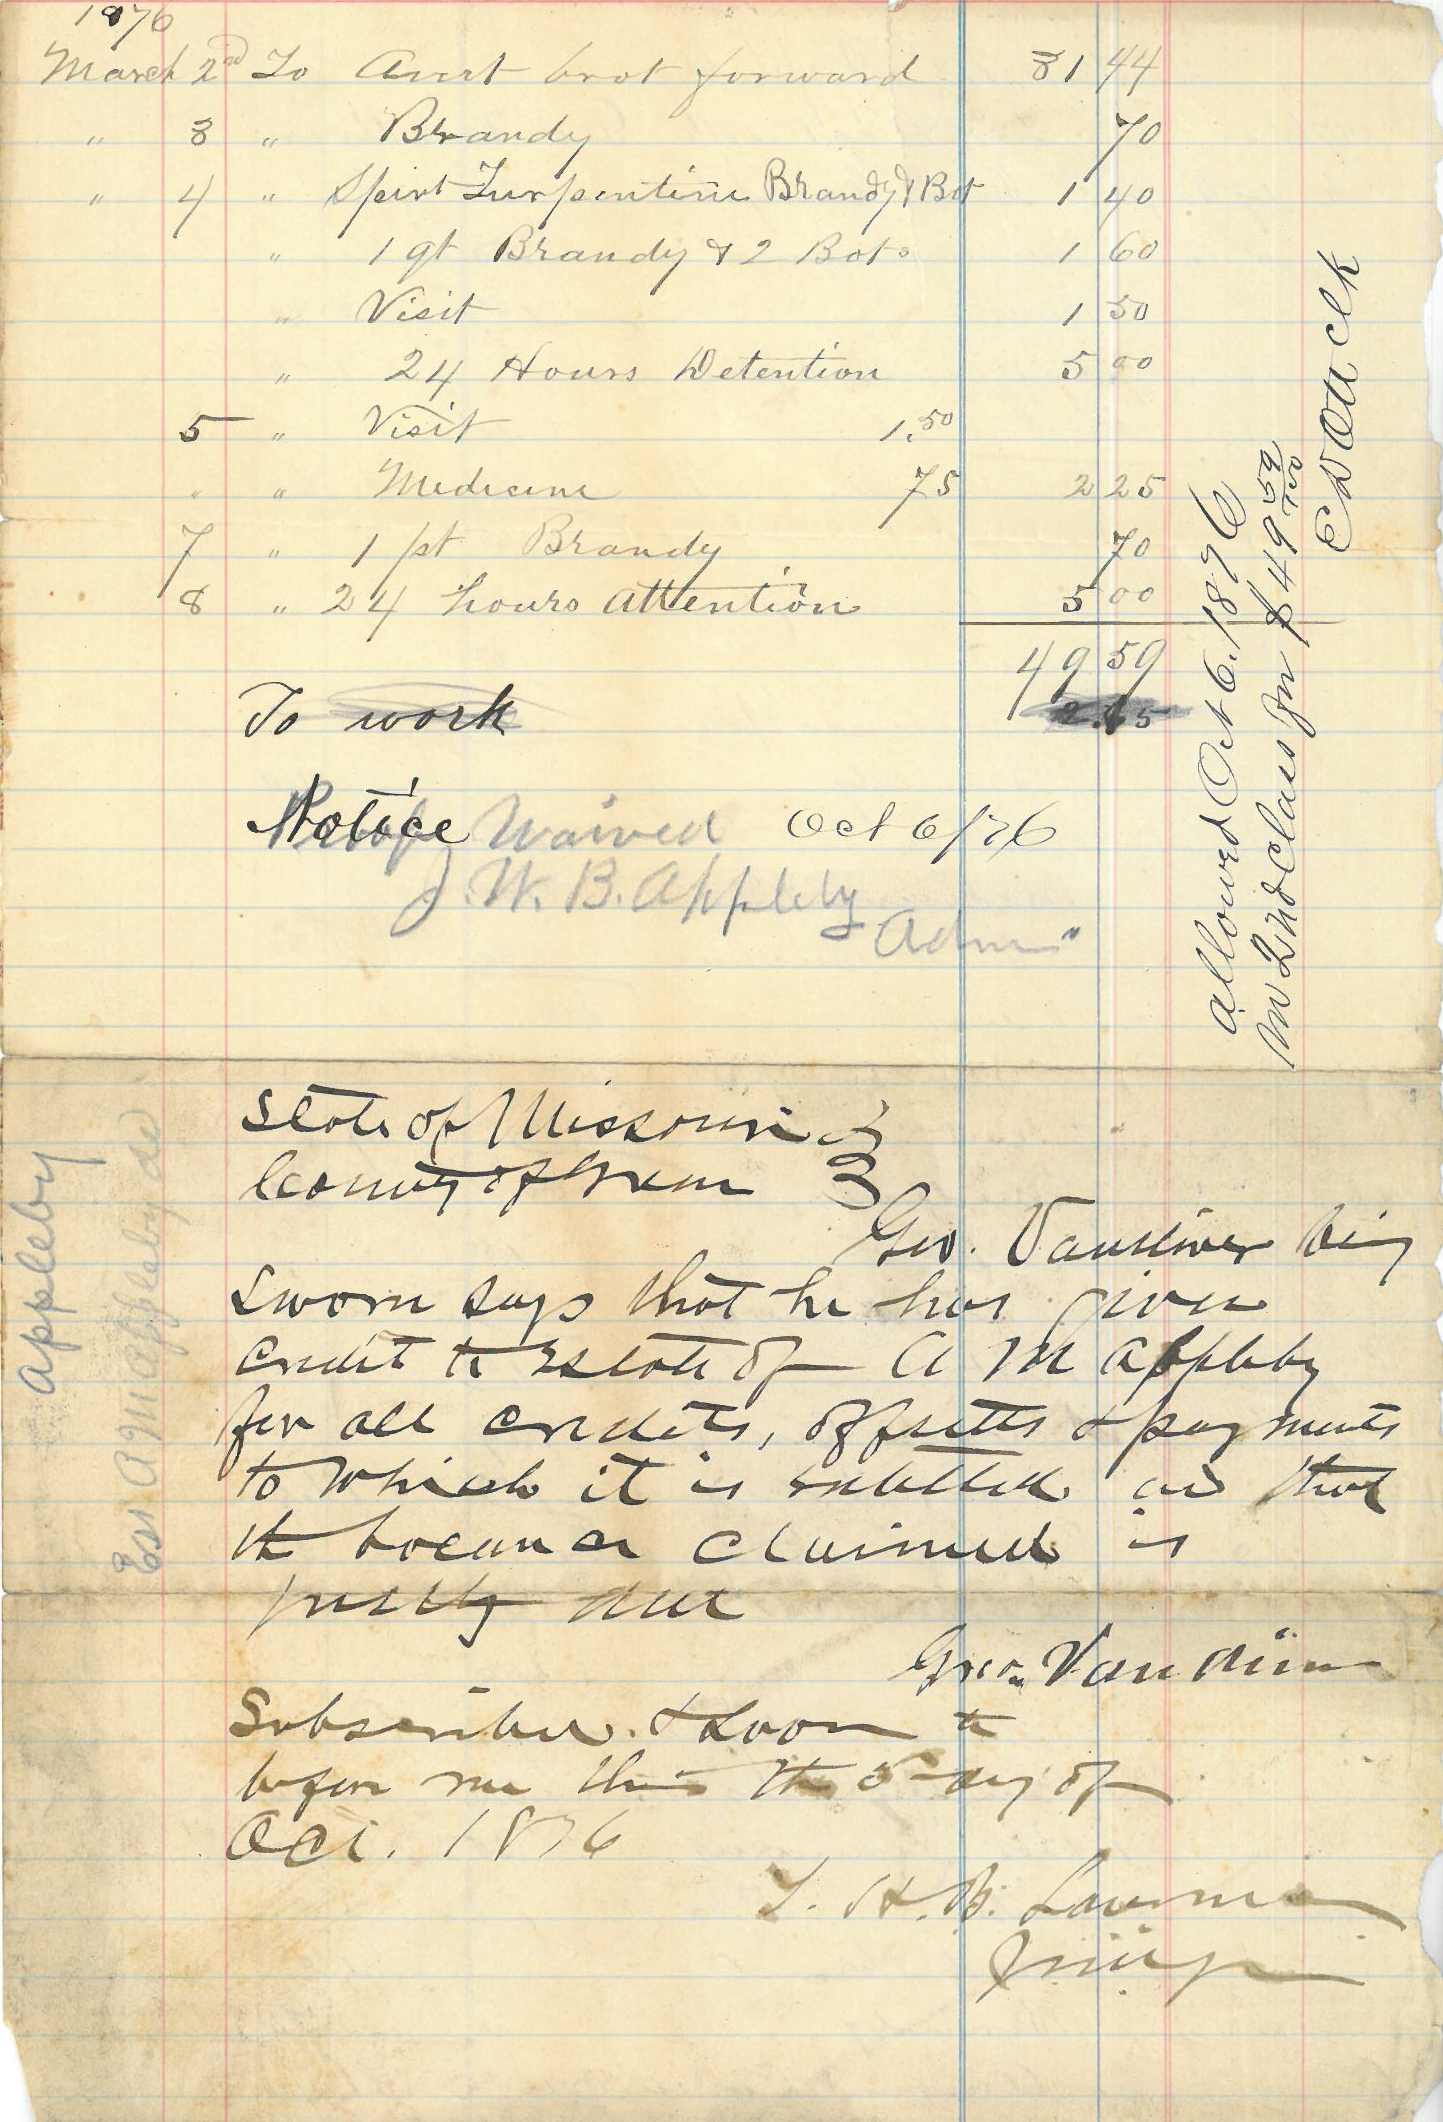 1876
March 2nd To Amt brot forward 31 44
" 3 " Brandy 70
" 4 " Spirt Turpentine Brandy & Bot 1 40
" 1 qt Brandy & 2 Bots 1 60
" Visit 1 50
" 24 Hours Detention 5 00
5 " Visit 1.50
" " Medicine 75 2 25
7 " 1 pt Brandy 70
8 " 24 hours attention 5 00
49 59
To work
Notice Waived Oct 6/76
J. W. B. Appleby
Adm"
allowed Oct 6. 1876
in 2nd Class for $49 59/100
Clk
State of Missouri
County of Green
Geo. Vandiver being
sworn says that he has given
credit to Estate of A M Appleby
for all credits, offsetts & payments
to which it is entitled and that
the balance claimed is
justly due
Geo. Vandiver
Subscribed & Sworn to
before me this the 5 day of
Oct. 1876
T. H. B. Lawrence
Appleby
Est A M Appleby